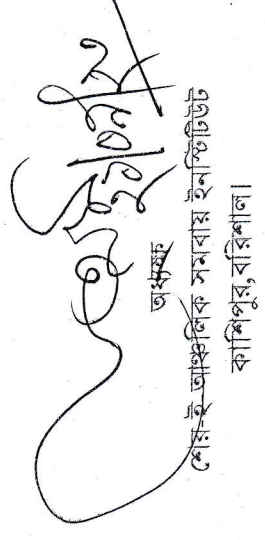 অধ্যক্ষ
শের-ই আঞ্চলিক সমবায় ইনস্টিটিউট
কাশিপুর, বরিশাল।